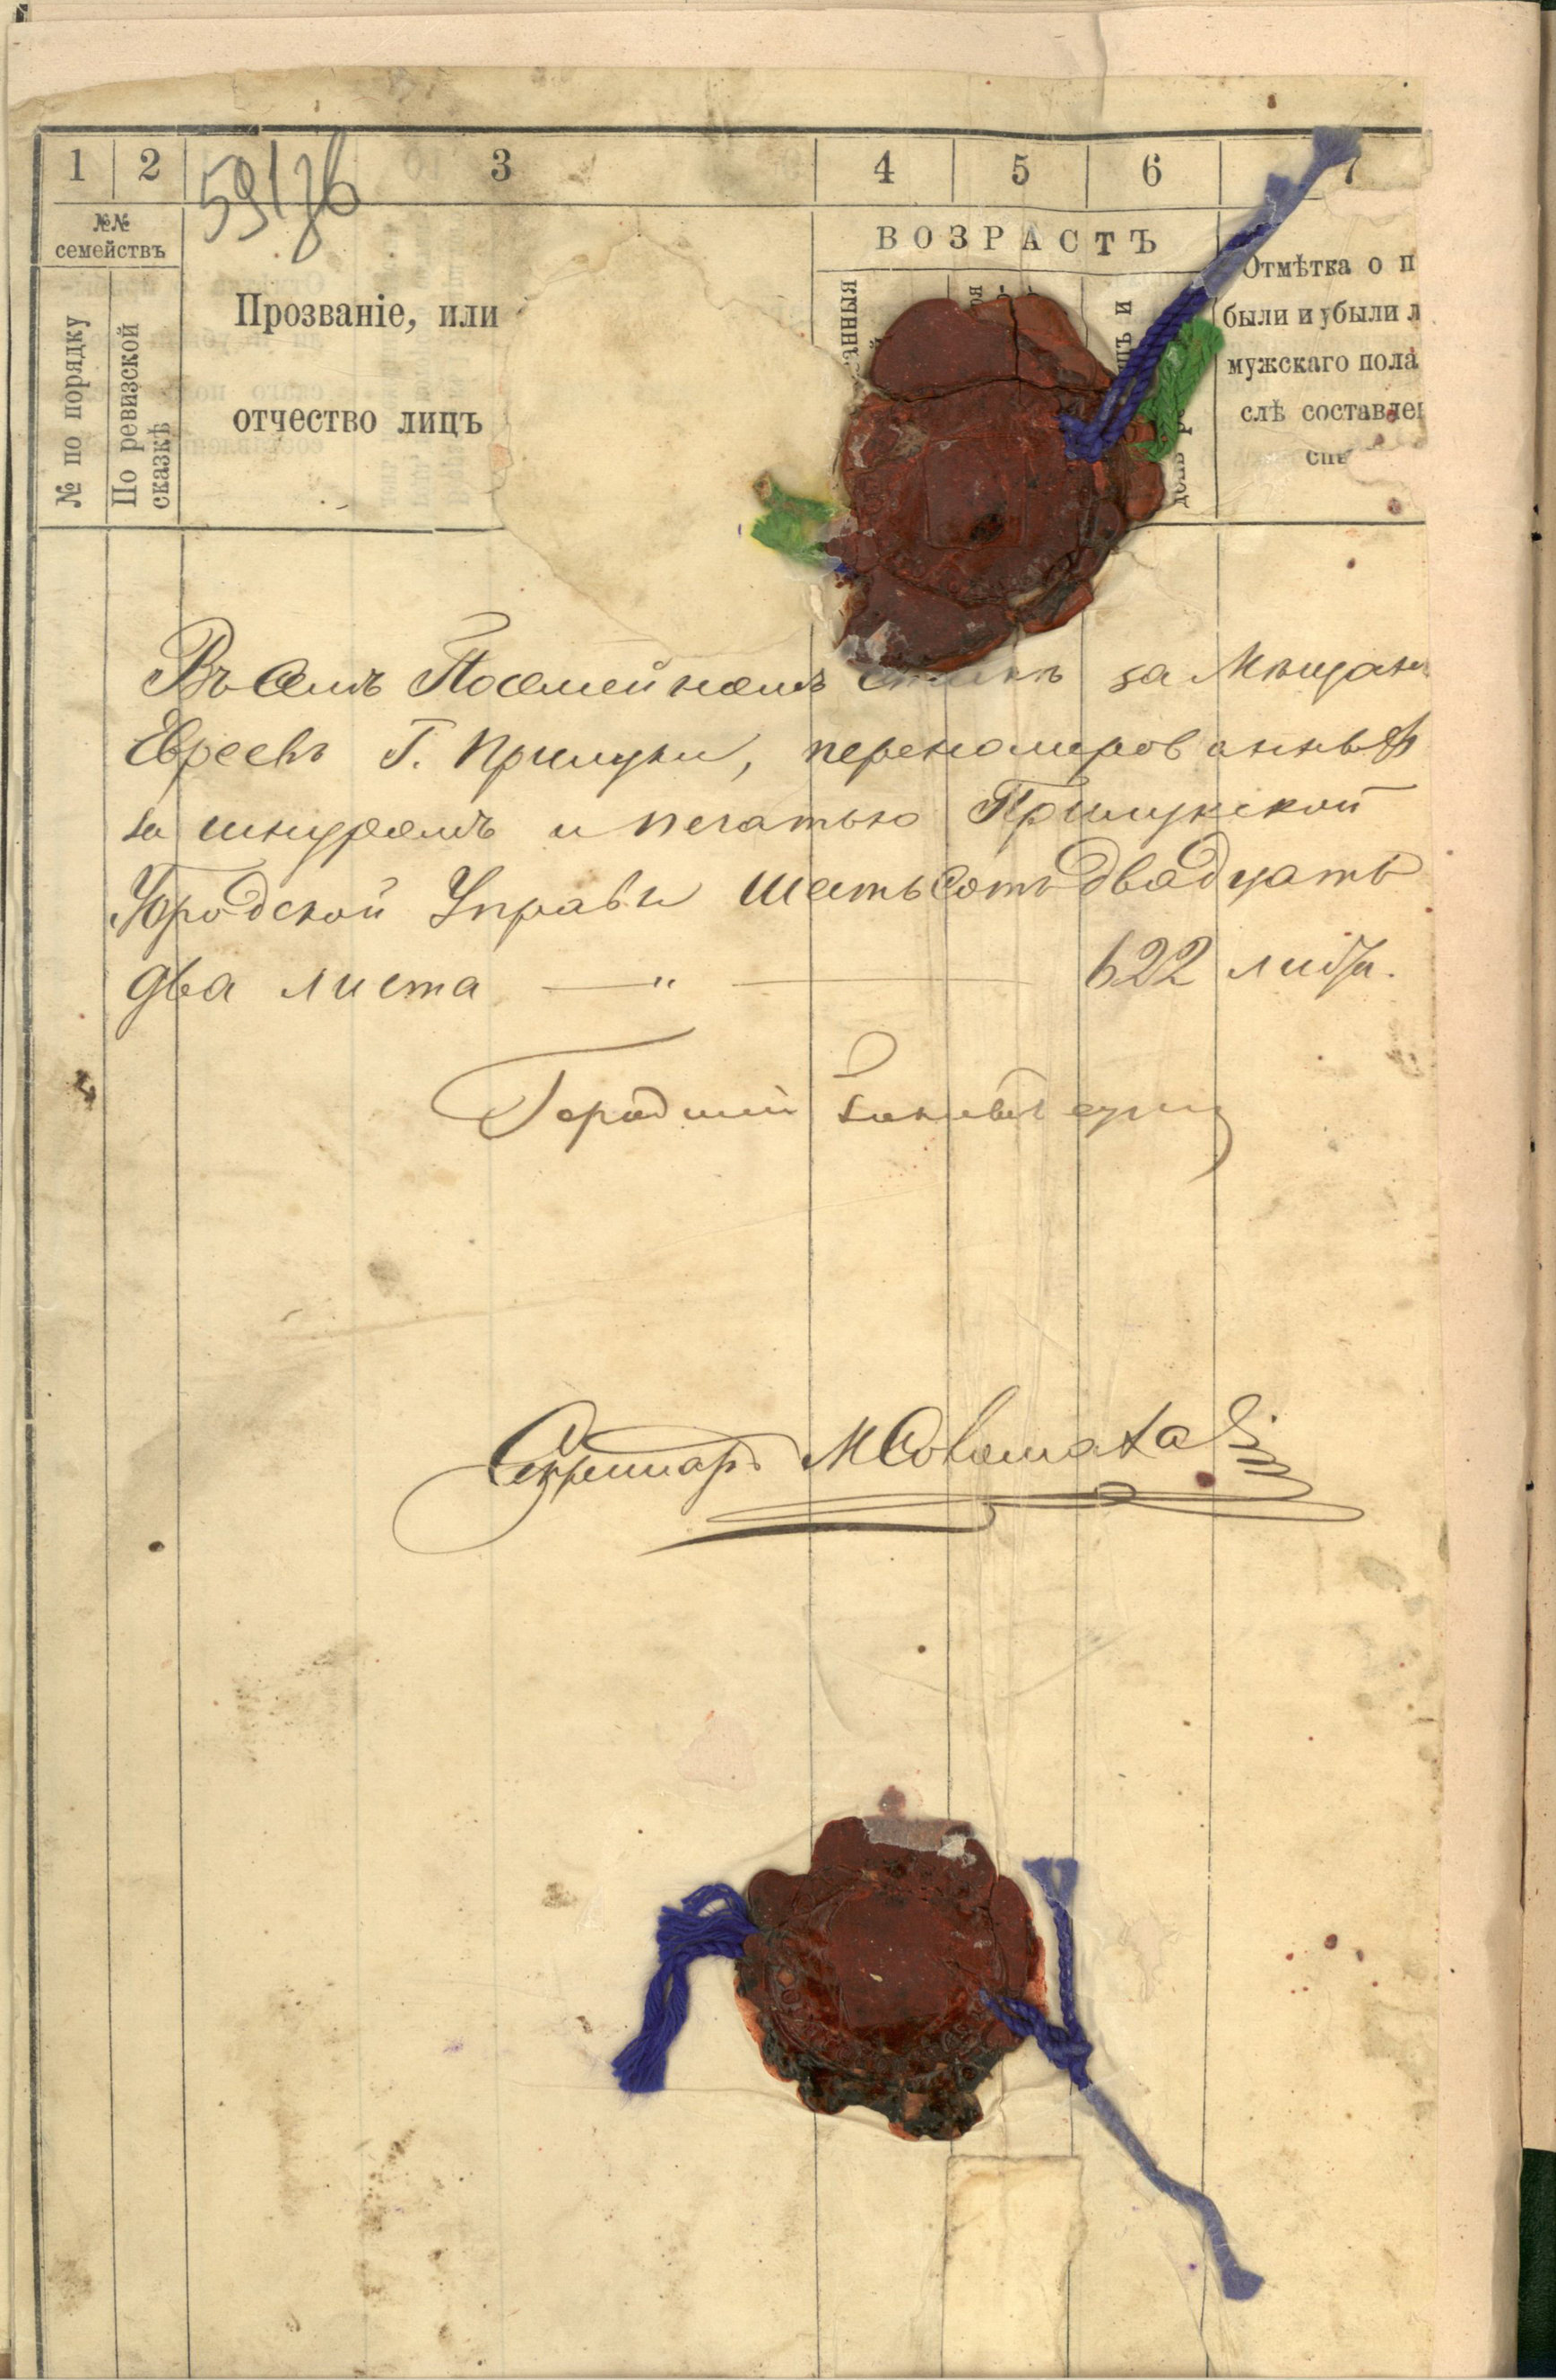 1 2 3 4 5 6 7
59176
№№
семействъ
№ по порядку
По ревизской
сказкѣ
Прозваніе, или
отчество лицъ
ВОЗРАСТЪ
Отмѣтка о п
были и убыли л
мужскаго пола
слѣ составле
Въ семъ Посемейномъ за Мѣщан
Евреевъ Г. Прилуки, перенумерованныхъ
за шнуромъ и печатью Прилукской
Городской Управы шестьсотъ двадцать
два листа — " — 622 лист.
Городской
Секретарь